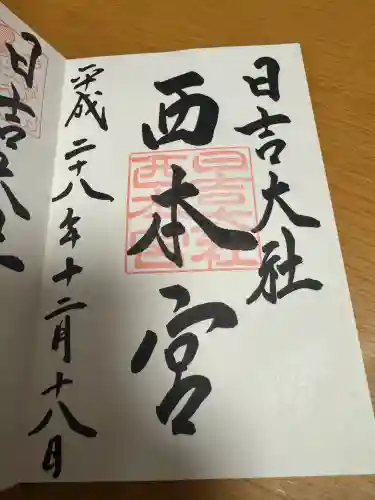 日吉大社
西本宮
日吉大社
西本宮
平成二十八年十二月十八日
日吉大社